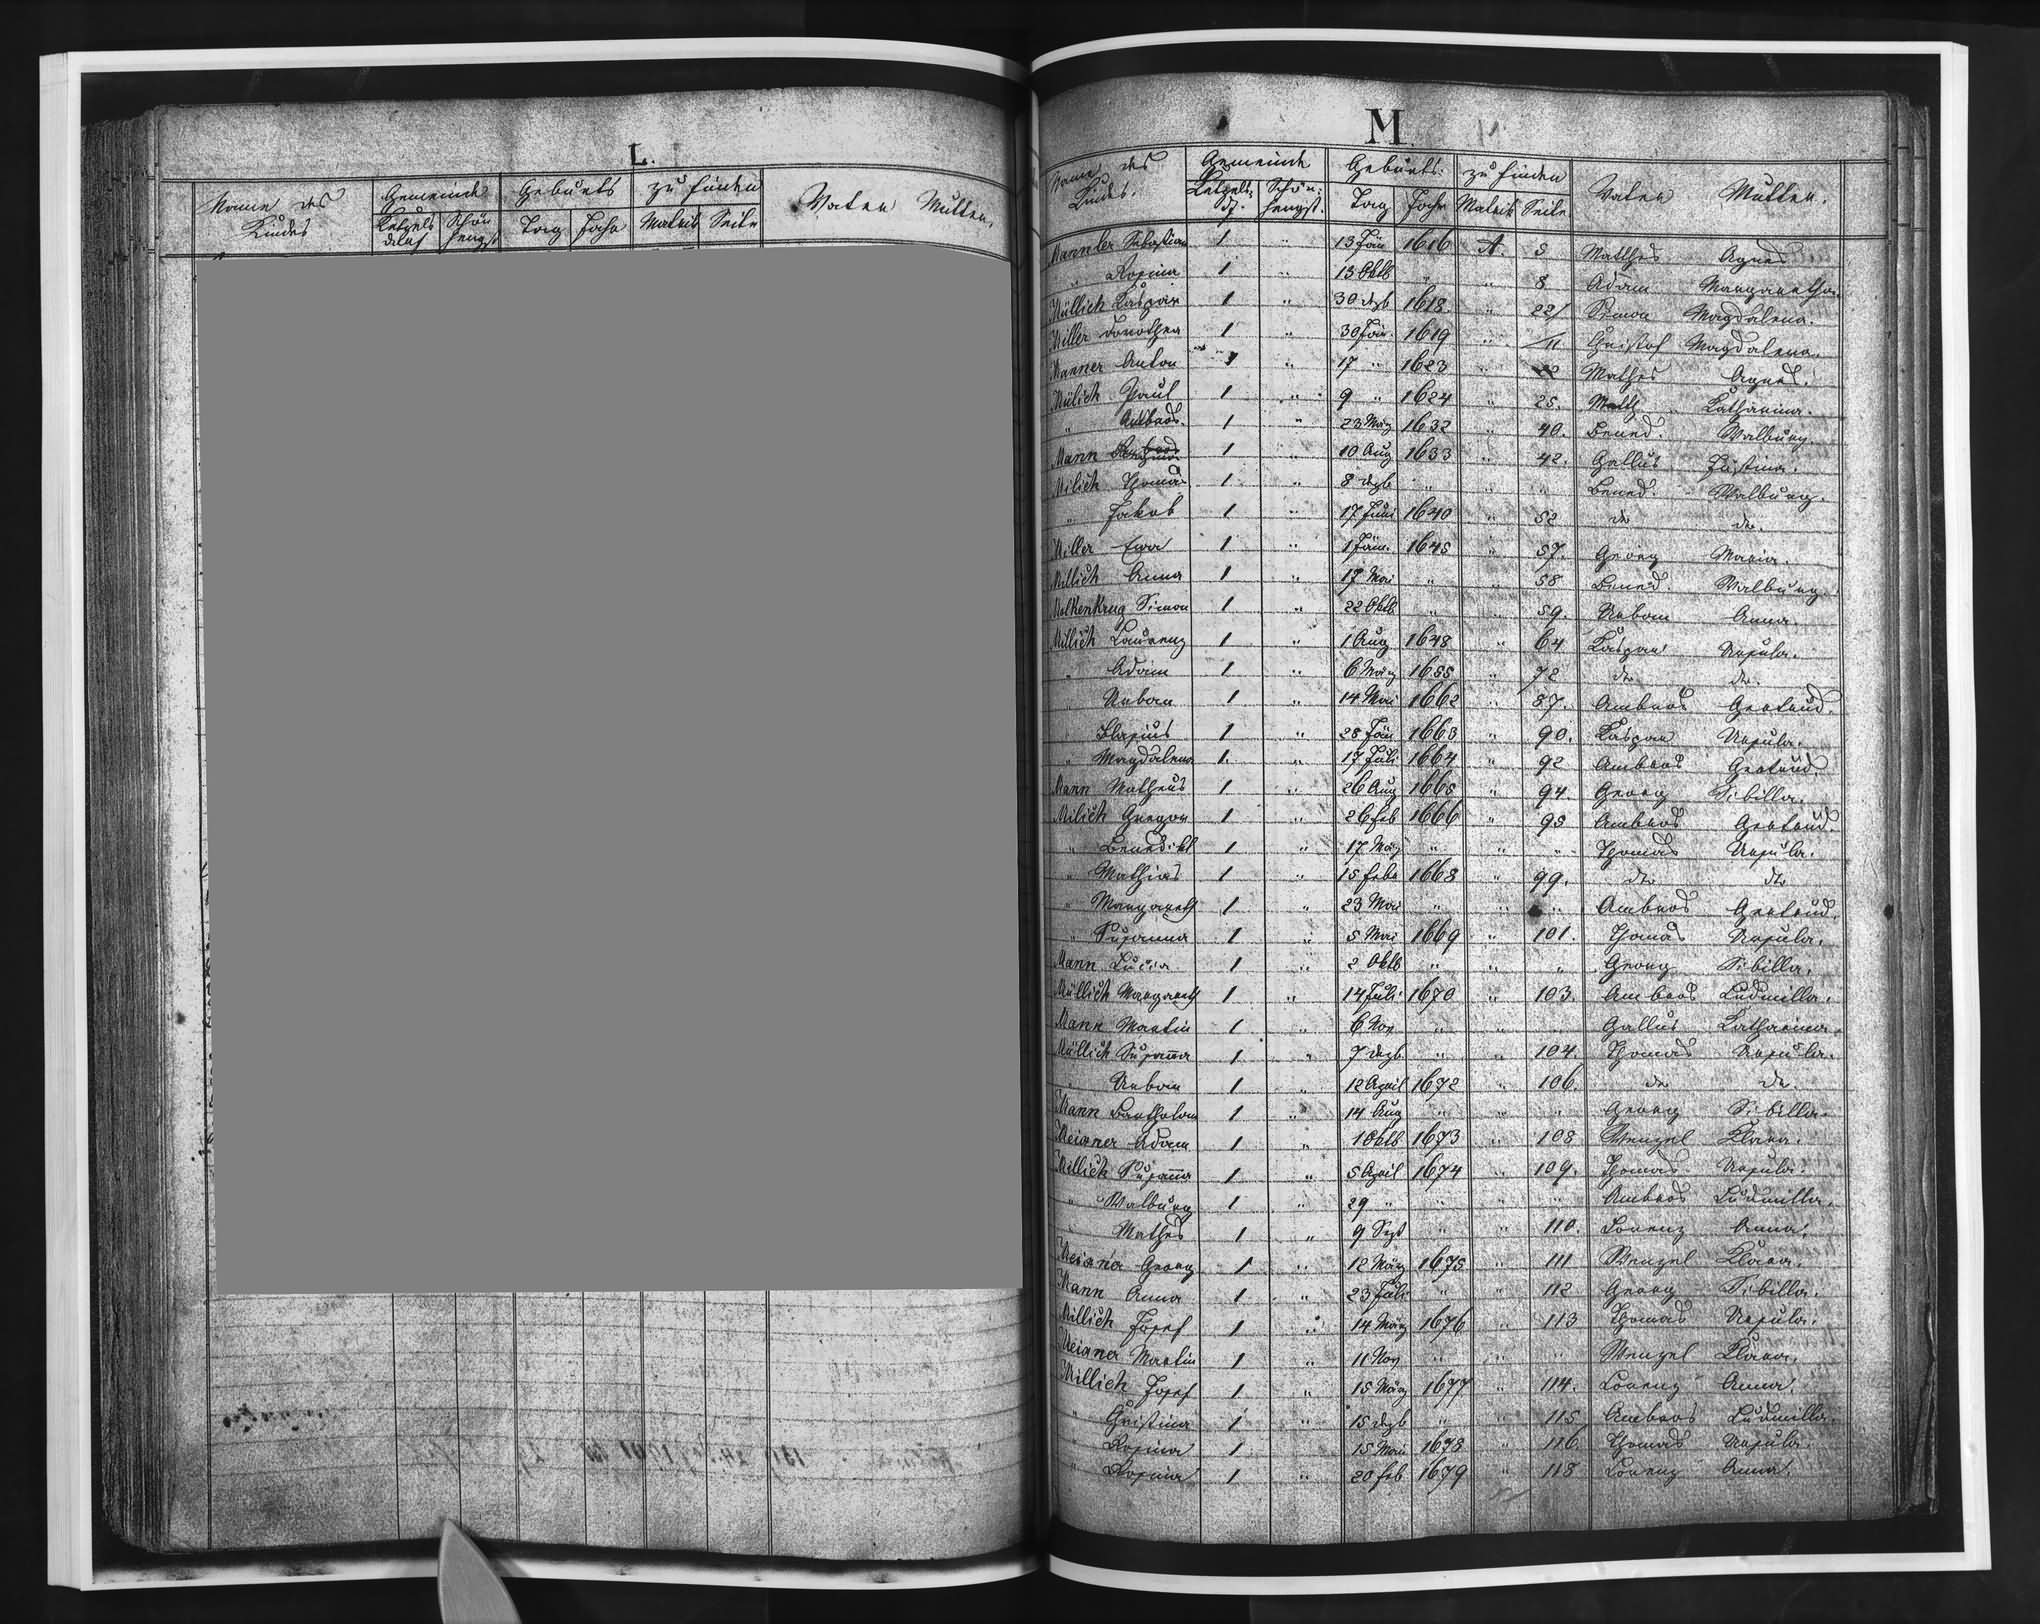 L.
Name des Kindes Gemeinde Geburts zu finden Vater Mutter.
Ketzels Schön Tag Jahr Matrik Seite
dorf hengst
M
Name des Kindes Gemeinde Geburts- zu finden Vater Mutter.
Ketzels- Schön- Tag Jahr Matrik Seite
df. hengst.
Mannler Sebastian 1 " 13 Jän 1616 A. 5 Mathes Agnes
" Rosina 1 " 13 Oktb " " 8 Adam Margaretha.
Müllich Kaspar 1 " 30 dezb 1618. " 22/ Simon Magdalena.
Miller Dorothea 1 " 30 Jän. 1619 " 11 Christof Magdalena.
Manner Anton 1 " 17 " 1623 " Mathes Agnes.
Mülich Paul 1 " 9 " 1624 " 25. Math Katharina.
" Ambros. 1 " 23 März 1632 " 40. Bened. Walburg.
Mann 1 " 10 Aug 1633 " 42. Gallus Justina.
Milich Thomas 1 " 8 dezb " " " Bened. Walburg.
" Jakob 1 " 17 Juni 1640 " 52 dto dto.
Miller Eva 1 " 1 Jän. 1645 " 57. Georg Maria.
Millich Anna 1 " 17 Mai " " 58 Bened. Walburg.
Melkenkrug Simon 1 " 22 Oktb " " 59. Urban Anna.
Millich Laurenz 1 " 1 Aug 1648 " 64 Kaspar Ursula.
" Adam 1 " 6 März 1655 " 72 dto dto.
" Urban 1 " 14 Mai 1662 " 87. Ambros Gertrud.
" Blasius 1 " 28 Jän 1663 " 90. Kaspar Ursula.
" Magdalena 1. " 17 Juli 1664 " 92 Ambros Gertrud.
Mann Matheus 1 " 26 Aug 1665 " 94. Georg Sibilla.
Milich Gregor 1 " 26 feb 1666 " 95 Ambros Gertrud.
" Benedikt 1 " 17 März " " " Thomas Ursula.
" Mathias 1 " 15 febr 1668 " 99. dto dto
" Margareth 1 " 23 Mai " " " Ambros Gertrud.
" Susanna 1 " 5 Mai 1669 " 101. Thomas Ursula.
Mann Lucia 1 " 2 Oktb " " " Georg Sibilla.
Müllich Margareth 1 " 14 Juli 1670 " 103. Ambros Ludmilla.
Mann Martin 1 " 6 Nov " " " Gallus Katharina.
Müllich Susanna 1 " 7 dezb " " 104. Thomas Ursula.
" Urban 1 " 12 April 1672 " 106. dto dto.
Mann Bartholom 1 " 14 Aug " " " Georg Sibilla.
Meixner Adam 1 " 1 Oktb 1673 " 108 Wenzel Klara.
Millich Susanna 1 " 5 April 1674 " 109. Thomas Ursula.
" Walburg 1 " 29 " " " " Ambros Ludmilla.
" Mathes 1 " 9 Sept " " 110. Lorenz Anna.
Georg 1 " 12 März 1675 " 111 Wenzel Klara.
Mann Anna 1 " 23 Juli " " 112 Georg Sibilla.
Millich Josef 1 " 14 März 1676 " 113 Thomas Ursula.
Meixner Martin 1 " 11 Nov " " " Wenzel Klara.
Millich Josef 1 " 15 März 1677 " 114. Lorenz Anna.
" Christina 1 " 15 dezb " " 115 Ambros Ludmilla.
" Rosina 1 " 15 Mai 1678 " 116. Thomas Ursula.
" Rosina 1 " 20 feb 1679 " 118 Lorenz Anna.